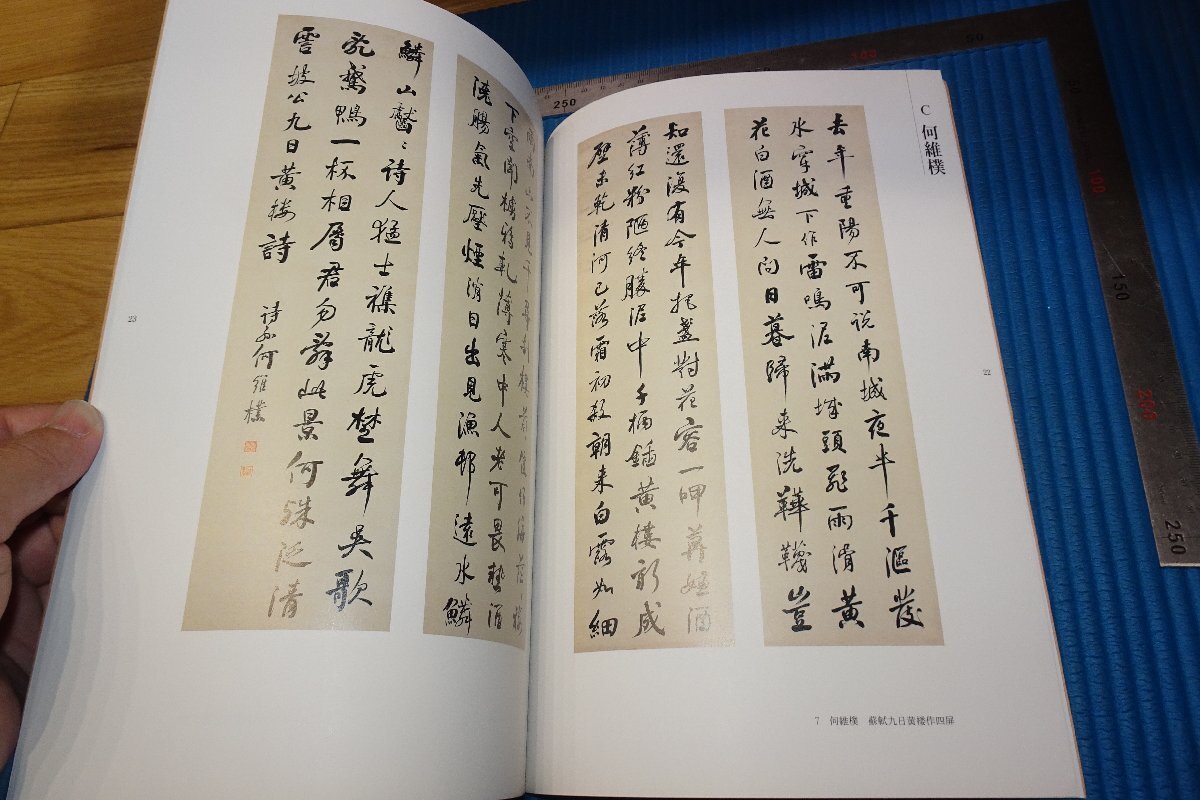 C 何維樸
去年重陽不可说南城夜半千漚發
水穿城下作雷鳴泥滿城頭飛雨滑黄
花白酒無人问日暮歸来洗鞾韈豈
知還復有今年把盞對花容一呷莫嫌酒
薄红粉陋終勝泥中千柄鍤黄樓新成
壁未乾清河已落霜初殺朝来白露如細
下空聞櫓鴉軋薄寒中人老可畏熱酒
澆腸氣先壓煙消日出見漁邨遠水鱗
鱗山齾〻诗人猛士雜龍虎楚舞吳歌
乱鵞鴨一杯相屬君勿辭此景何殊泛清
霅坡公九日黄楼詩
诗孙何維樸
7 何維樸 蘇軾九日黄楼作四屏
22
23
250
100
50
50
100
150
200
250